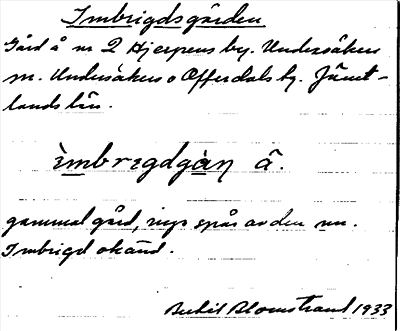 Imbrigdsgården
Gård å nr 2 Hjerpens by. Undersåkers
sn. Undersåkers o Offerdals tg. Jämt-
lands län.
ìmbrɪgdgàṇ å.
gammal gård, inga spår av den nu.
Imbrigd okänd.
Bertil Blomstrand 1933